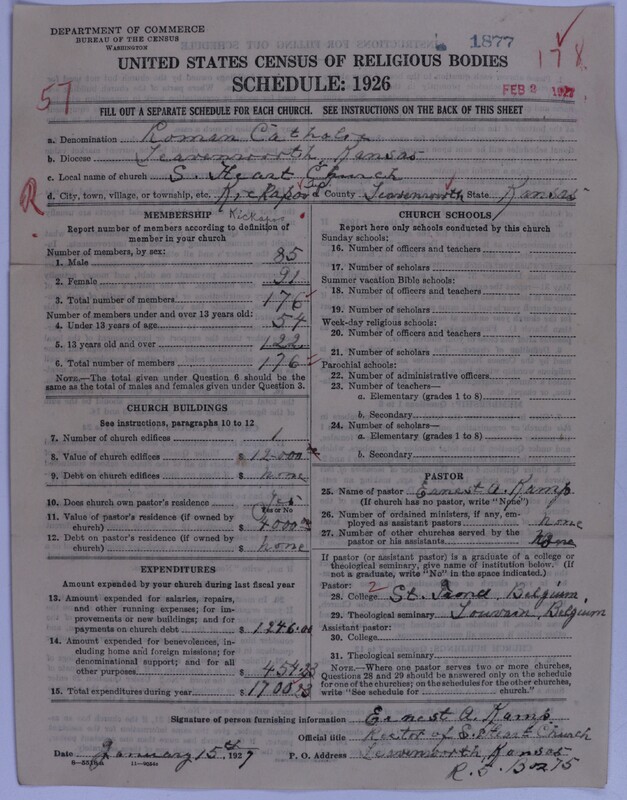 DEPARTMENT OF COMMERCE
BUREAU OF THE CENSUS
WASHINGTON
1877
178
UNITED STATES CENSUS OF RELIGIOUS BODIES
SCHEDULE: 1926
FEB 2 1927
57
FILL OUT A SEPARATE SCHEDULE FOR EACH CHURCH. SEE INSTRUCTIONS ON THE BACK OF THIS SHEET
a. Denomination Roman Catholic
b. Diocese Leavenworth, Kansas
c. Local name of church S. Heart Church
R d. City, town, village, or township, etc. Kickapoo d County Leavenworth State Kansas
MEMBERSHIP Kickapoo
Report number of members according to definition of
member in your church
Number of members, by sex:
1. Male 85
2. Female 91
3. Total number of members 176
Number of members under and over 13 years old:
4. Under 13 years of age 54
5. 13 years old and over 122
6. Total number of members 176
NOTE.—The total given under Question 6 should be
same as the total of males and females given under Question 3.
CHURCH BUILDINGS
See instructions, paragraphs 10 to 12
7. Number of church edifices 1
8. Value of church edifices $ 12000
9. Debt on church edifices $ none
10. Does church own pastor's residence Yes
Yes or No
11. Value of pastor's residence (if owned by
church) $ 4000
12. Debt on pastor's residence (if owned by
church) $ none
EXPENDITURES
Amount expended by your church during last fiscal year
13. Amount expended for salaries, repairs,
and other running expenses; for im-
provements or new buildings; and for
payments on church debt $ 1246.00
14. Amount expended for benevolences, in-
cluding home and foreign missions; for
denominational support; and for all
other purposes $ 454.33
15. Total expenditures during year $
CHURCH SCHOOLS
Report here only schools conducted by this church
Sunday schools:
16. Number of officers and teachers
17. Number of scholars
Summer vacation Bible schools:
18. Number of officers and teachers
19. Number of scholars
Week-day religious schools:
20. Number of officers and teachers
21. Number of scholars
Parochial schools:
22. Number of administrative officers
23. Number of teachers—
a. Elementary (grades 1 to 8)
b. Secondary
24. Number of scholars—
a. Elementary (grades 1 to 8)
b. Secondary
PASTOR
25. Name of pastor Ernest A. Kamp
(If church has no pastor, write "None")
26. Number of ordained ministers, if any, em-
ployed as assistant pastors none
27. Number of other churches served by the
pastor or his assistants None
If pastor (or assistant pastor) is a graduate of a college or
theological seminary, give name of institution below. (If
not a graduate, write "No" in the space indicated.)
Pastor: 2
28. College St. Belgium
29. Theological seminary Louvain, Belgium
Assistant pastor:
30. College
31. Theological seminary
NOTE.—Where one pastor serves two or more churches,
Questions 28 and 29 should be answered only on the schedule
for one of the churches; on the schedules for the other churches,
write "See schedule for church."
Signature of person furnishing information Ernest A. Kamp
Official title Rector of S. Heart Church
Date January 15th, 1927 P. O. Address Leavenworth, Kansas
R. 5. Box 75